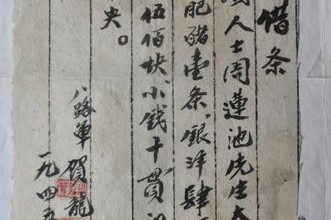 借条
国人士周蓮池先生大
肥豬壹条、銀洋肆
伍佰块、小钱十貫
失。
八路軍 賀龍
一九四五